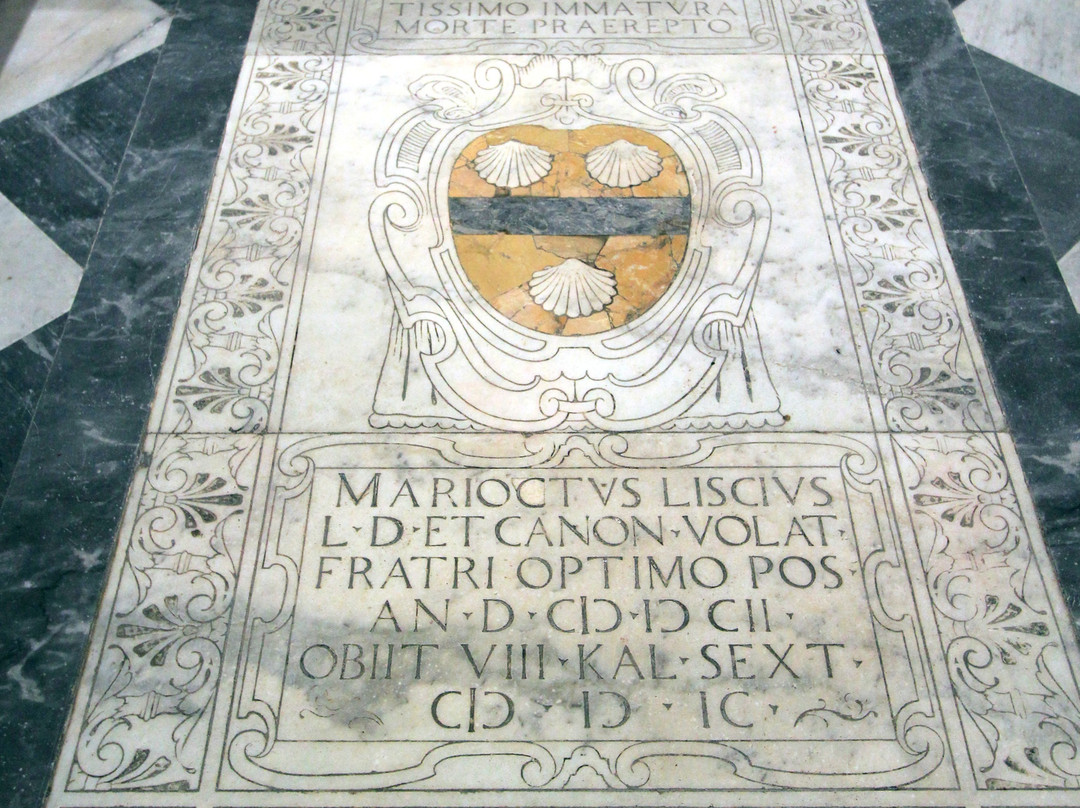 TISSIMO IMMATVRA
MORTE PRAEREPTO
MARIOCTVS LISCIVS
L·D·ET CANON·VOLAT·
FRATRI OPTIMO POS·
AN·D·CIↃ·IↃ CII·
OBIIT VIII·KAL·SEXT·
CIↃ·IↃ·IC·